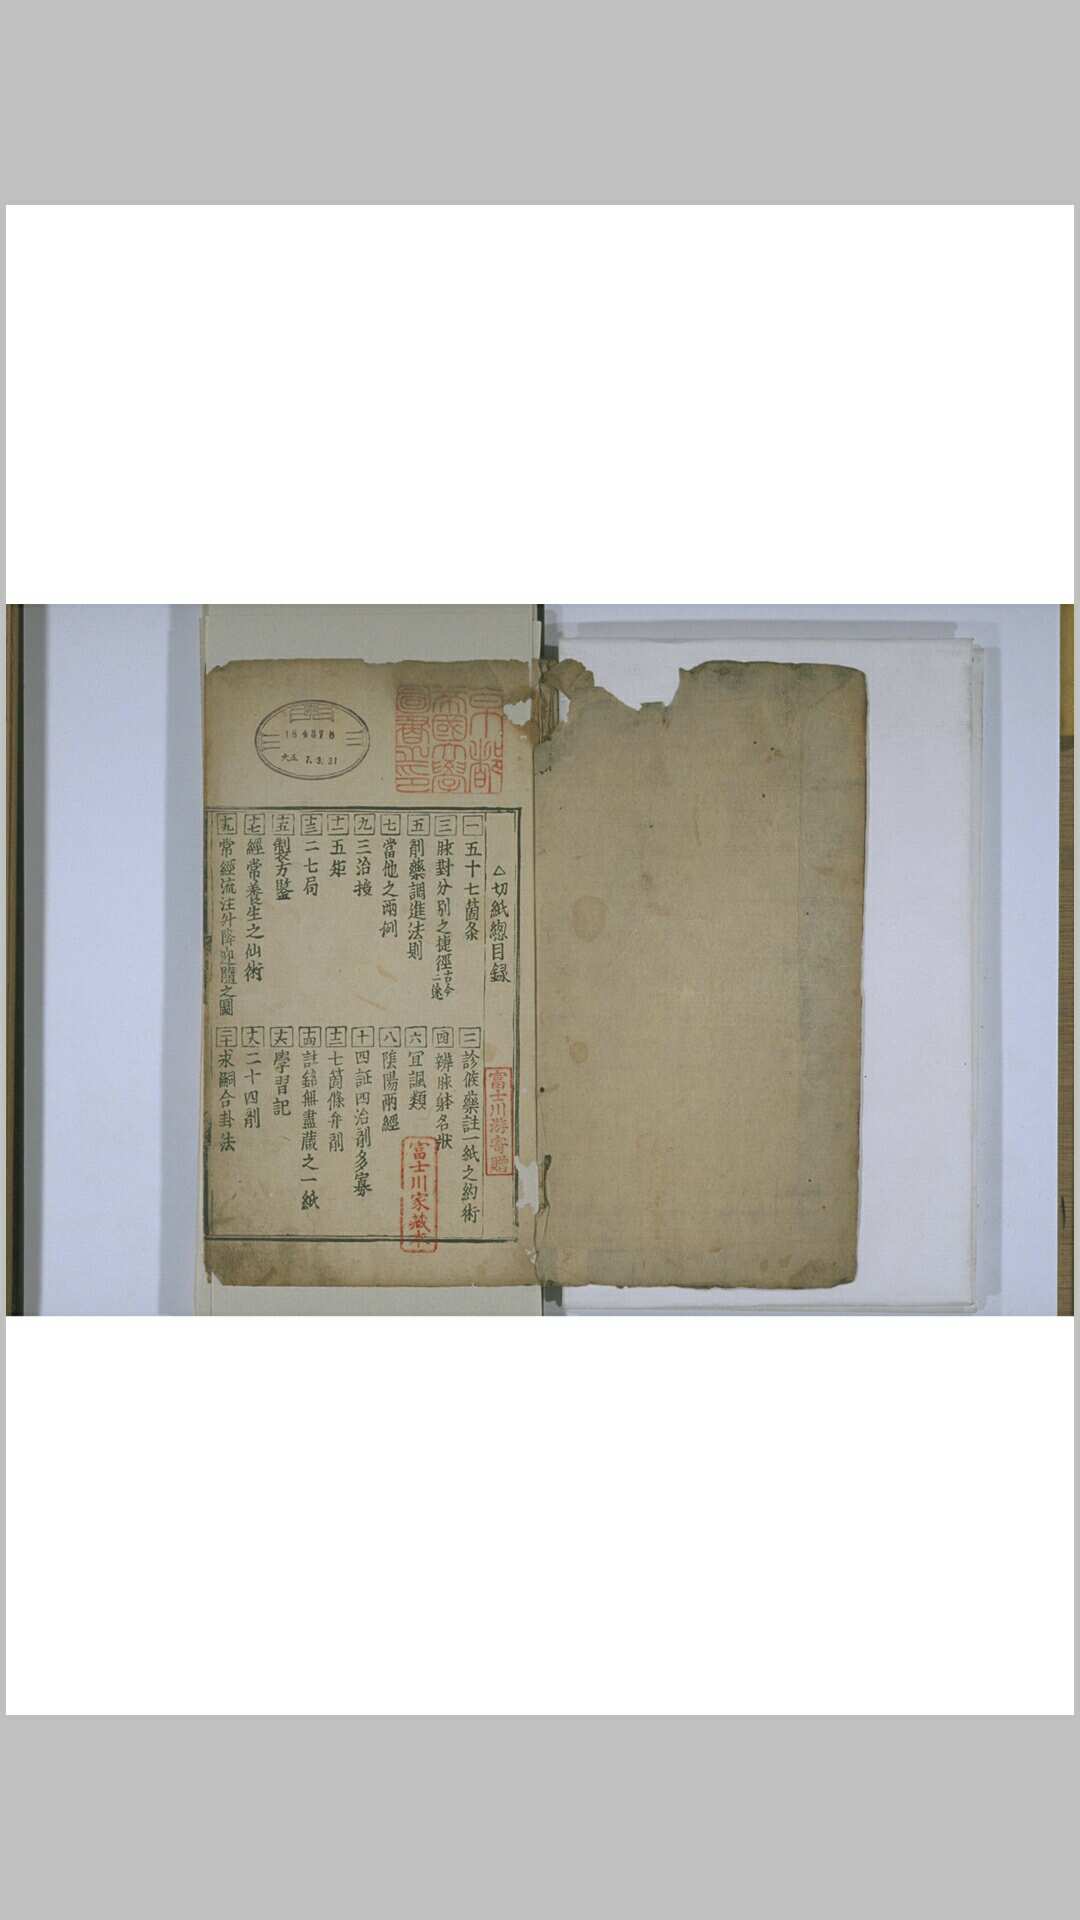 京都
帝國大學
圖書之印
184378
大正 7.3.31
△切紙總目録
一 五十七箇条
二 診候藥註一紙之約術
三 脉對分別之捷徑古今二途
四 辨脉躰名状
五 剤藥調進法則
六 宜諷類
七 當他之兩例
八 陰陽兩經
九 三治接
十 四証四治剤多寡
十一 五矩
十二 七箇條弁剤
十三 二七局
十四 註録無盡蔵之一紙
十五 製方鑑
十六 學習記
十七 經常養生之仙術
十八 二十四剤
十九 常經流注升降迎隨之圖
二十 求嗣合卦法
富士川游寄贈
富士川家藏本